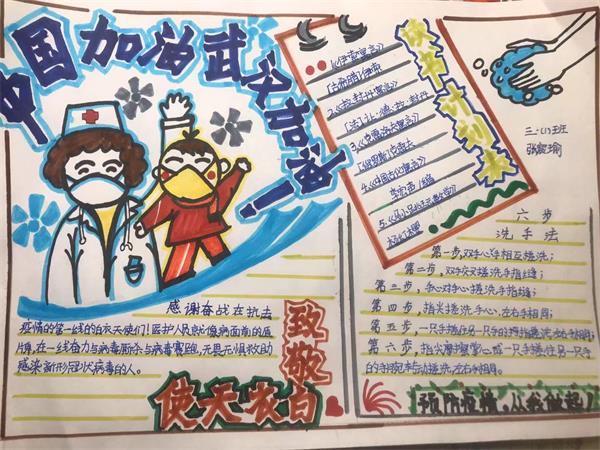 中国加油武汉加油！
感谢奋战在抗击
疫情的第一线的白衣天使们！医护人员
在一线奋力与病毒厮杀与病毒赛跑，无畏无惧救助
感染新形冠状病毒的人。
致敬
使天衣白
读书计划表
1.《伊索寓言》
[古希腊]伊索
2.《拉封丹寓言》
[法]让·德·拉·封丹
3.《克雷洛夫寓言》
4.《中国古代寓言》
5.
三.(1)班
六步
洗手法
第一步，双手心手相互搓洗；
第二步，双手交叉搓洗手指缝；
第三步，手心对手心搓洗手指缝；
第四步，指尖搓洗手心，左右手相同；
第五步，一只手握住另一只手的拇指搓洗，左右手相同；
第六步，指尖摩擦掌心或一只手握住另一只手
的手腕转动搓洗，左右手相同。
预防疫情，从我做起！